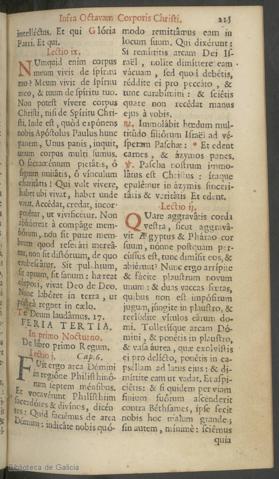 Infra Octavam Corporis Christi.
223
intelléctus. Et qui Glória
Patri. Et qui.
Lectio ix.
NUmquid enim corpus
meum vivit de spíritu
tuo? Meum vivit de spíritu
meo, & tuum de spíritu tuo.
Non potest vívere corpus
Christi, nisi de Spíritu Chri-
sti. Inde est, quod expónens
nobis Apóstolus Paulus hunc
panem, Unus panis, inquit,
unum corpus multi sumus.
O sacraméntum pietátis, ô
signum unitátis, ô vínculum
charitátis! Qui vult vívere,
habet ubi vivat, habet unde
vivat. Accédat, credat, incor-
porétur, ut vivificétur. Non
abhórreat à compáge mem-
brórum, non sit putre mem-
brum quod resecári mereá-
tur, non sit distórtum, de quo
erubescátur. Sit pulchrum,
sit aptum, sit sanum: hæreat
córpori, vivat Deo de Deo.
Nunc labóret in terra, ut
póstea regnet in cælo.
Te Deum laudámus. 17.
FERIA TERTIA.
In primo Nocturno.
De libro primo Regum.
Lectio j. Cap. 6.
FUit ergo arca Dómini
in regióne Philisthinó-
rum septem ménsibus.
Et vocavérunt Philísthiim
sacerdótes & divínos, dicén-
tes: Quid faciémus de arca
Dómini? indicáte nobis quó-
modo remittámus eam in
locum suum. Qui dixérunt:
Si remíttitis arcam Dei Is-
raël, nolíte dimíttere eam
vácuam, sed quod debétis,
réddite ei pro peccáto, &
tunc curabímini: & sciétis
quare non recédat manus
ejus à vobis.
℟. Immolábit hœdum mul-
titúdo filiórum Israël ad vé-
speram Paschæ: * Et edent
carnes, & ázymos panes.
℣. Pascha nostrum immo-
látus est Christus: ítaque
epulémur in ázymis sinceri-
tátis & veritátis Et edent.
Lectio ij.
QUare aggravátis corda
vestra, sicut aggravá-
vit Ægyptus & Phárao cor
suum? nonne postquam per-
cússus est, tunc dimísit eos, &
abiérunt? Nunc ergo arrípite
& fácite plaustrum novum
unum: & duas vaccas fœtas,
quibus non est impósitum
jugum, júngite in plaustro, &
reclúdite vítulos eárum do-
mi. Tollétisque arcam Dó-
mini, & ponétis in plaustro,
& vasa áurea, quæ exolvístis
ei pro delícto, ponétis in ca-
pséllam ad latus ejus: & di-
míttite eam ut vadat. Et aspi-
ciétis: & si quidem per viam
fínium suórum ascénderit
contra Béthsames, ipse fecit
nobis hoc malum grande:
sin autem, mínime: sciémus
quia
Biblioteca de Galicia